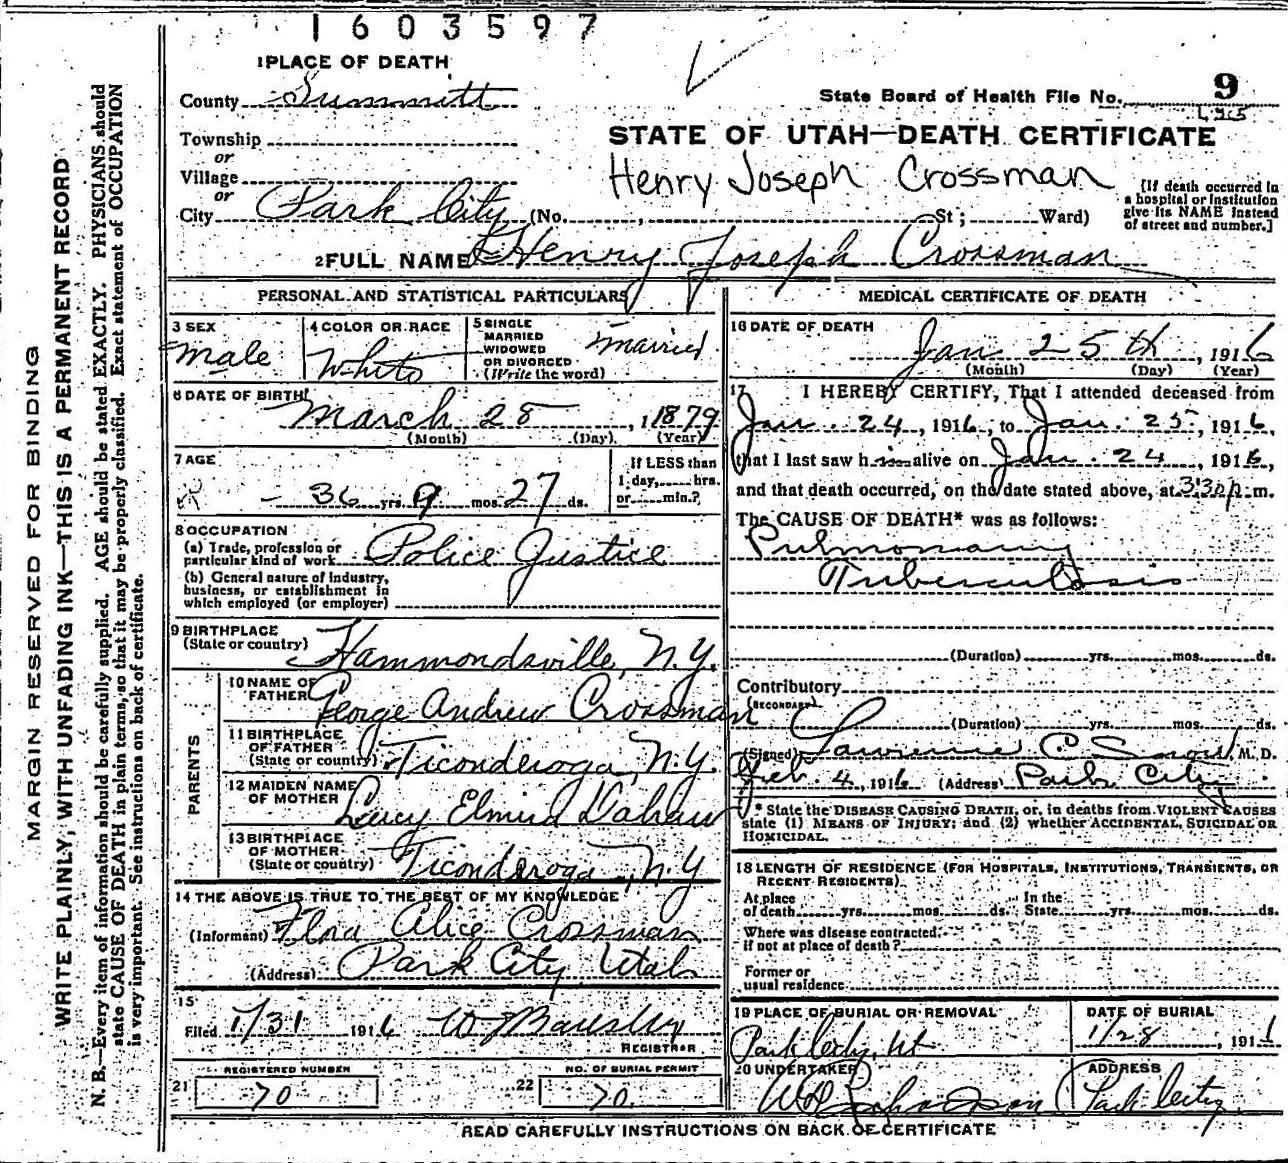 1603597
1 PLACE OF DEATH
County Summitt
Township
or
Village
or
City Park City (No. , St; Ward)
State Board of Health File No. 9
STATE OF UTAH—DEATH CERTIFICATE
Henry Joseph Crossman
[If death occurred in
a hospital or institution
give its NAME instead
of street and number.]
2 FULL NAME Henry Joseph Crossman
PERSONAL AND STATISTICAL PARTICULARS
3 SEX
Male
4 COLOR OR RACE
White
5 SINGLE
MARRIED
WIDOWED
OR DIVORCED
(Write the word)
Married
6 DATE OF BIRTH
March 28, 1879
(Month) (Day) (Year)
7 AGE
36 yrs. 9 mos. 27 ds.
If LESS than
1 day, hrs.
or min.?
8 OCCUPATION
(a) Trade, profession or
particular kind of work Police Justice
(b) General nature of industry,
business, or establishment in
which employed (or employer)
9 BIRTHPLACE
(State or country) Hammondsville, N.Y.
PARENTS
10 NAME OF
FATHER George Andrew Crossman
11 BIRTHPLACE
OF FATHER
(State or country) Ticonderoga, N.Y.
12 MAIDEN NAME
OF MOTHER Lucy
13 BIRTHPLACE
OF MOTHER
(State or country) Ticonderoga, N.Y
14 THE ABOVE IS TRUE TO THE BEST OF MY KNOWLEDGE
(Informant) Flora Alice Crossman
(Address) Park City Utah
15
Filed 1/31 1916
REGISTRAR
REGISTERED NUMBER
21 70
NO. OF BURIAL PERMIT
22 70
MEDICAL CERTIFICATE OF DEATH
16 DATE OF DEATH
Jan 25th, 1916
(Month) (Day) (Year)
17 I HEREBY CERTIFY, That I attended deceased from
Jan. 24, 1916, to Jan. 25, 1916,
that I last saw him alive on Jan. 24, 1916,
and that death occurred, on the date stated above, at 3:30 p.m.
The CAUSE OF DEATH* was as follows:
Pulmonary
Tuberculosis
(Duration) yrs. mos. ds.
Contributory
(SECONDARY)
(Duration) yrs. mos. ds.
(Signed) Lawrence C. Snow, M.D.
Feb. 4, 1916 (Address) Park City
* State the DISEASE CAUSING DEATH, or, in deaths from VIOLENT CAUSES
state (1) MEANS OF INJURY; and (2) whether ACCIDENTAL, SUICIDAL OR
HOMICIDAL.
18 LENGTH OF RESIDENCE (FOR HOSPITALS, INSTITUTIONS, TRANSIENTS, OR
RECENT RESIDENTS)
At place
of death yrs. mos. ds.
In the
State yrs. mos. ds.
Where was disease contracted
if not at place of death?
Former or
usual residence
19 PLACE OF BURIAL OR REMOVAL
Park City, Ut
DATE OF BURIAL
1/28, 1916
20 UNDERTAKER
ADDRESS
Park City
READ CAREFULLY INSTRUCTIONS ON BACK OF CERTIFICATE
MARGIN RESERVED FOR BINDING
WRITE PLAINLY, WITH UNFADING INK—THIS IS A PERMANENT RECORD
N. B.—Every item of information should be carefully supplied. AGE should be stated EXACTLY. PHYSICIANS should
state CAUSE OF DEATH in plain terms, so that it may be properly classified. Exact statement of OCCUPATION
is very important. See instructions on back of certificate.